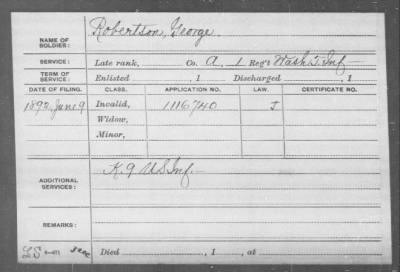 NAME OF SOLDIER: Robertson, George.
SERVICE: Late rank, Co. A, 1 Reg't Wash T. Inf
TERM OF SERVICE: Enlisted , 1 Discharged , 1
DATE OF FILING. CLASS. APPLICATION NO. LAW. CERTIFICATE NO.
1892, June 9 Invalid, 1116740 J
Widow,
Minor,
ADDITIONAL SERVICES: K. 9 U S Inf.
REMARKS:
Died , 1 , at